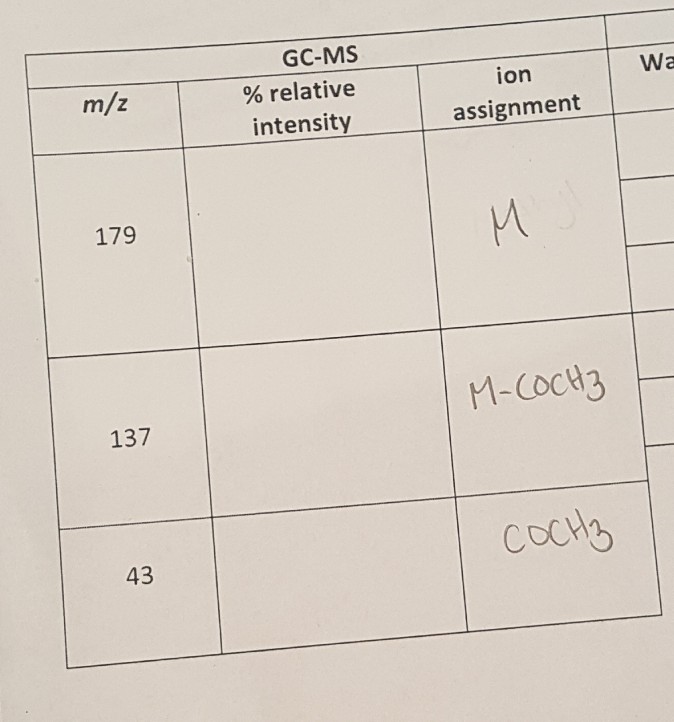 GC-MS
m/z
% relative
intensity
ion
assignment
Wa
179
M
137
M-COCH3
43
COCH3